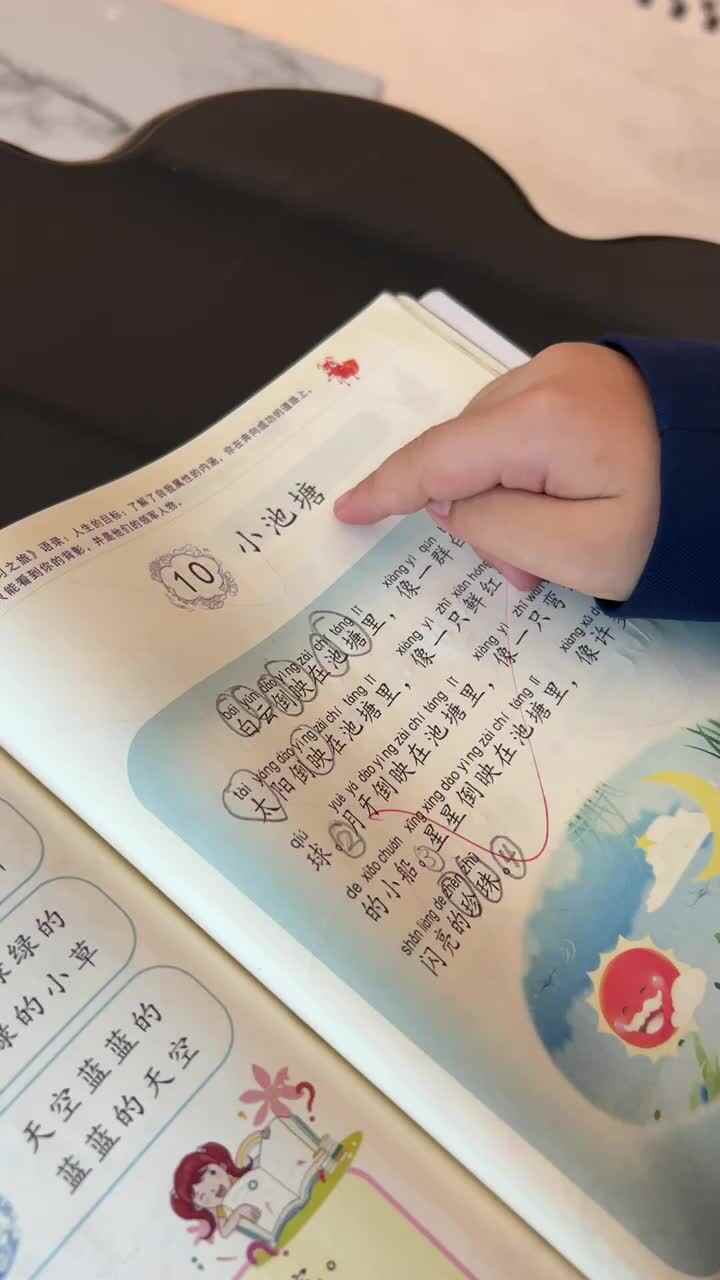 》语录：人生的目标：了解了自我属性的内涵，你在奔向成功的道路上，
能看到你的背影，并是他们的领军人物。
10 小池塘
bái yún dào yìng zài chí táng lǐ xiàng yì qún
白云倒映在池塘里，像一群
tài yáng dào yìng zài chí táng lǐ xiàng yì zhī xiān hóng
太阳倒映在池塘里，像一只鲜红
qiú yuè yá dào yìng zài chí táng lǐ xiàng yì zhī wān
球。②月牙倒映在池塘里，像一只弯
de xiǎo chuán xīng xing dào yìng zài chí táng lǐ xiàng xǔ
的小船。③星星倒映在池塘里，像许
shǎn liàng de zhēn zhū
闪亮的珍珠。④
绿的
绿的小草
天空蓝蓝的
蓝蓝的天空